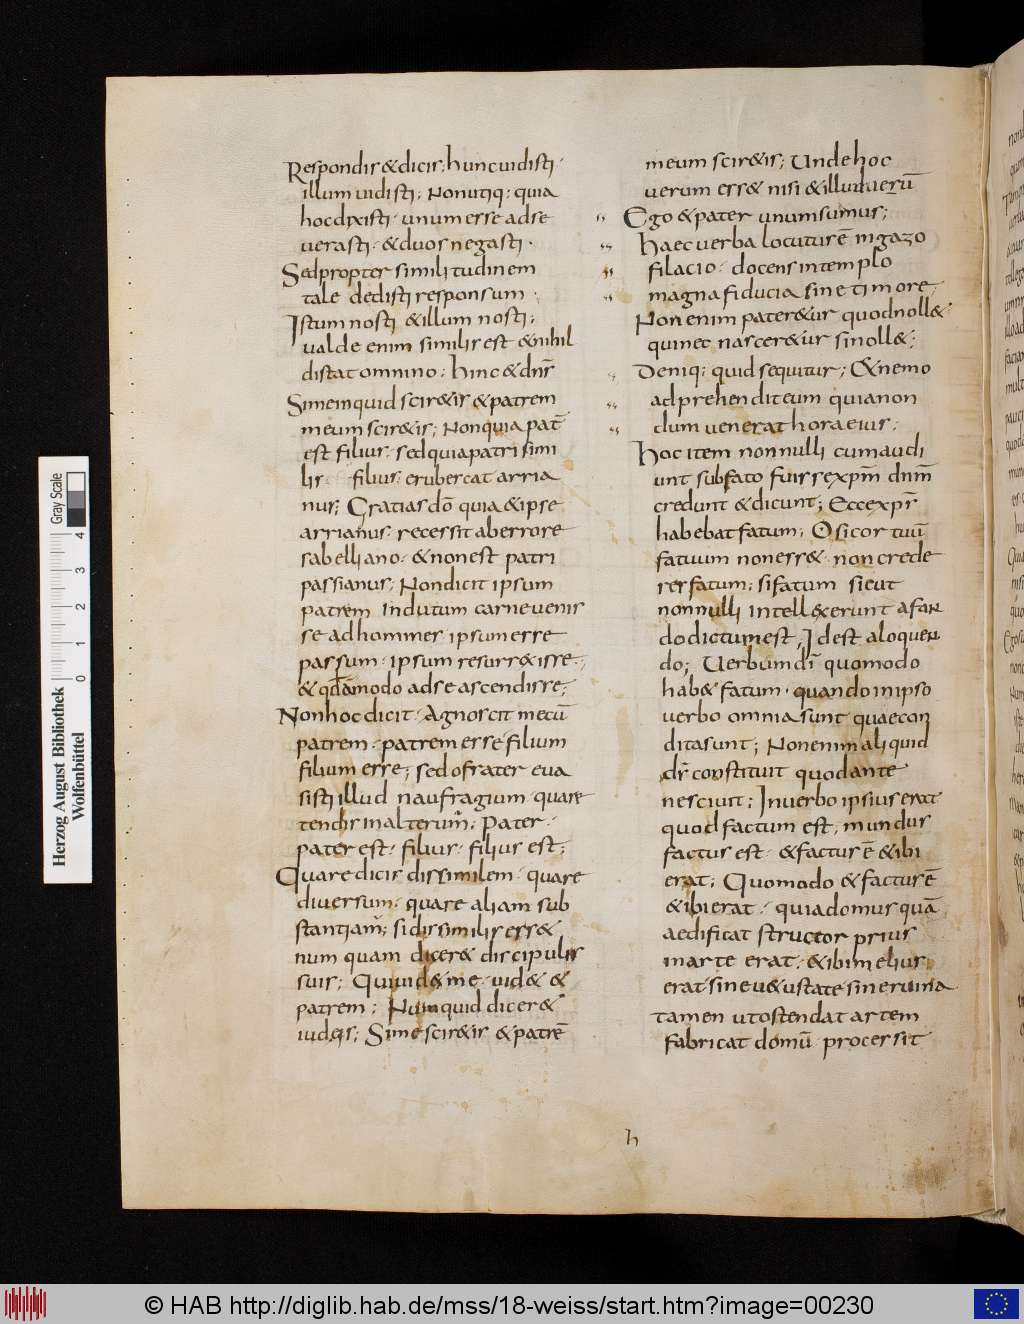 Respondis & dicis; hunc uidisti·
illum uidisti; Non utiq;· quia
hoc dixisti· unum esse adse
uerasti· & duos negasti·
Sed propter similitudinem
tale dedisti responsum·
Istum nosti & illum nosti;
ualde enim similis est & nihil
distat omnino; hinc & dn̄s
Sime inquid scir&is & patrem
meum scir&is; Non quia pat̄
est filius· sed quia patri simi
lis· filius· erubercat arria
nus; Gratias dō quia & ipse
arrianus· recessit ab errore
sabelliano· & non est patri
passianus; Non dicit ipsum
patrem indutum carne uenis
se ad homines ipsum esse
passum· ipsum resurr&isse·;
& qdāmodo ad se ascendisse;
Non hoc dicit· Agnoscit mecū
patrem· patrem esse filium
filium esse; sed o frater eua
sisti illud naufragium quare
tendis in alterum; Pater·
pater est· filius· filius est;
Quare dicis dissimilem· quare
diuersum· quare aliam sub
stantiam; si dissimilis ess&
num quam dicer& discipulis
suis; Qui uid& me· uid& &
patrem; Numquid dicer&
iudeis; Si me scir&is & patrē
meum scir&is; Unde hoc
uerum ess& nisi & illud uerū
Ego & pater unum sumus;
haec uerba locutus ē in gazo
filacio· docens in templo
magna fiducia sine timore
Non enim pater&ur quod noll&
qui nec nascer&ur si noll&;
Deniq; quid sequitur; & nemo
adprehendit eum quia non
dum uenerat hora eius·
hoc item nonnulli cum audi
unt sub fato fuisse xpm̄ dnm̄
credunt & dicunt; Ecce xpr̄
habebat fatum; O si cor tuū
fatuum non ess& non crede
res fatum; si fatum sicut
nonnulli intell&xerunt a fan
do dictum est, Id est a loquen
do; Uerbum dī quomodo
hab& fatum· quando in ipso
uerbo omnia sunt quae con
dita sunt; Non enim aliquid
dr̄ constituit quod ante
nesciuit; In uerbo ipsius erat
quod factum est; mundus
factus est· & factus ē & ibi
erat; Quomodo & factus ē
& ibi erat· quia domus quā
aedificat structor prius
in arte erat· & ibi melius
erat sine u&ustate sine ruina
tamen ut ostendat artem
fabricat domū processit
h
Herzog August Bibliothek
Wolfenbüttel
0 1 2 3 4
Gray Scale
© HAB http://diglib.hab.de/mss/18-weiss/start.htm?image=00230